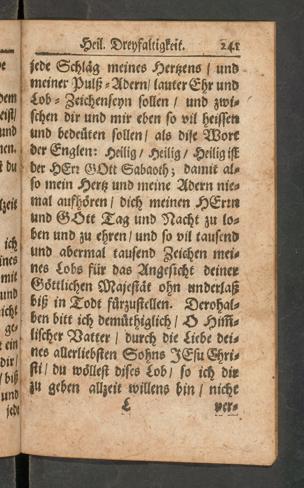 Heil. Dreyfaltigkeit. 241
jede Schläg meines Hertzens / und
meiner Pulß-Adern/ lauter Ehr und
Lob-Zeichenseyn sollen / und zwi-
schen dir und mir eben so vil heissen
und bedeüten sollen/ als dise Wort
der Englen: Heilig/ Heilig/ Heilig ist
der HErr GOtt Sabaoth; damit al-
so mein Hertz und meine Adern nie-
mal aufhören/ dich meinen HErrn
und GOtt Tag und Nacht zu lo-
ben und zu ehren/ und so vil tausend
und abermal tausend Zeichen mei-
nes Lobs für das Angesicht deiner
Göttlichen Majestät ohn underlaß
biß in Todt fürzustellen. Derohal-
ben bitt ich demüthiglich/ O Him̄-
lischer Vatter/ durch die Liebe dei-
nes allerliebsten Sohns JEsu Chri-
sti/ du wöllest dises Lob/ so ich dir
zu geben allzeit willens bin/ nicht
L ver-
dem
eist/
und
nen.
st du
lzeit
ich
ines
mit
und
nicht
ge-
t ein
dir/
/ biß
und
jede